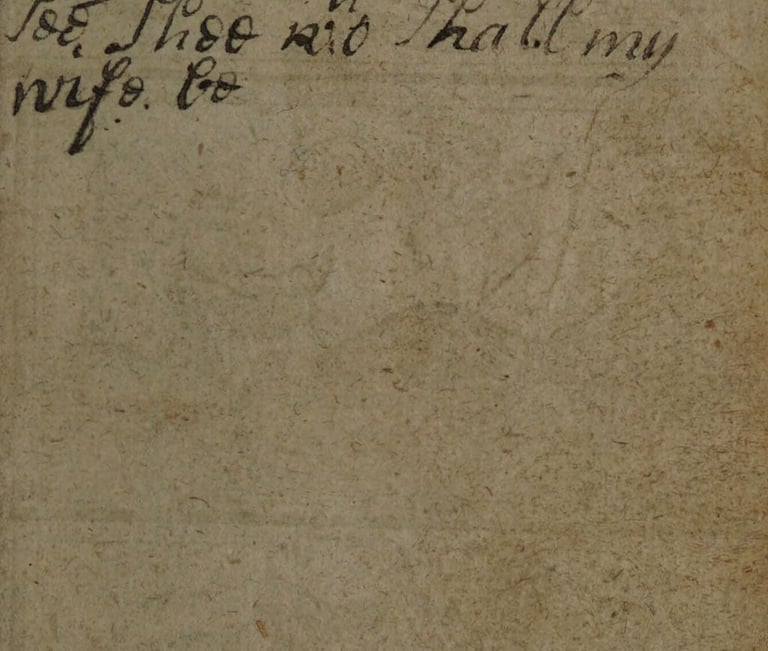 See, Shee wo Shall my
wife. be